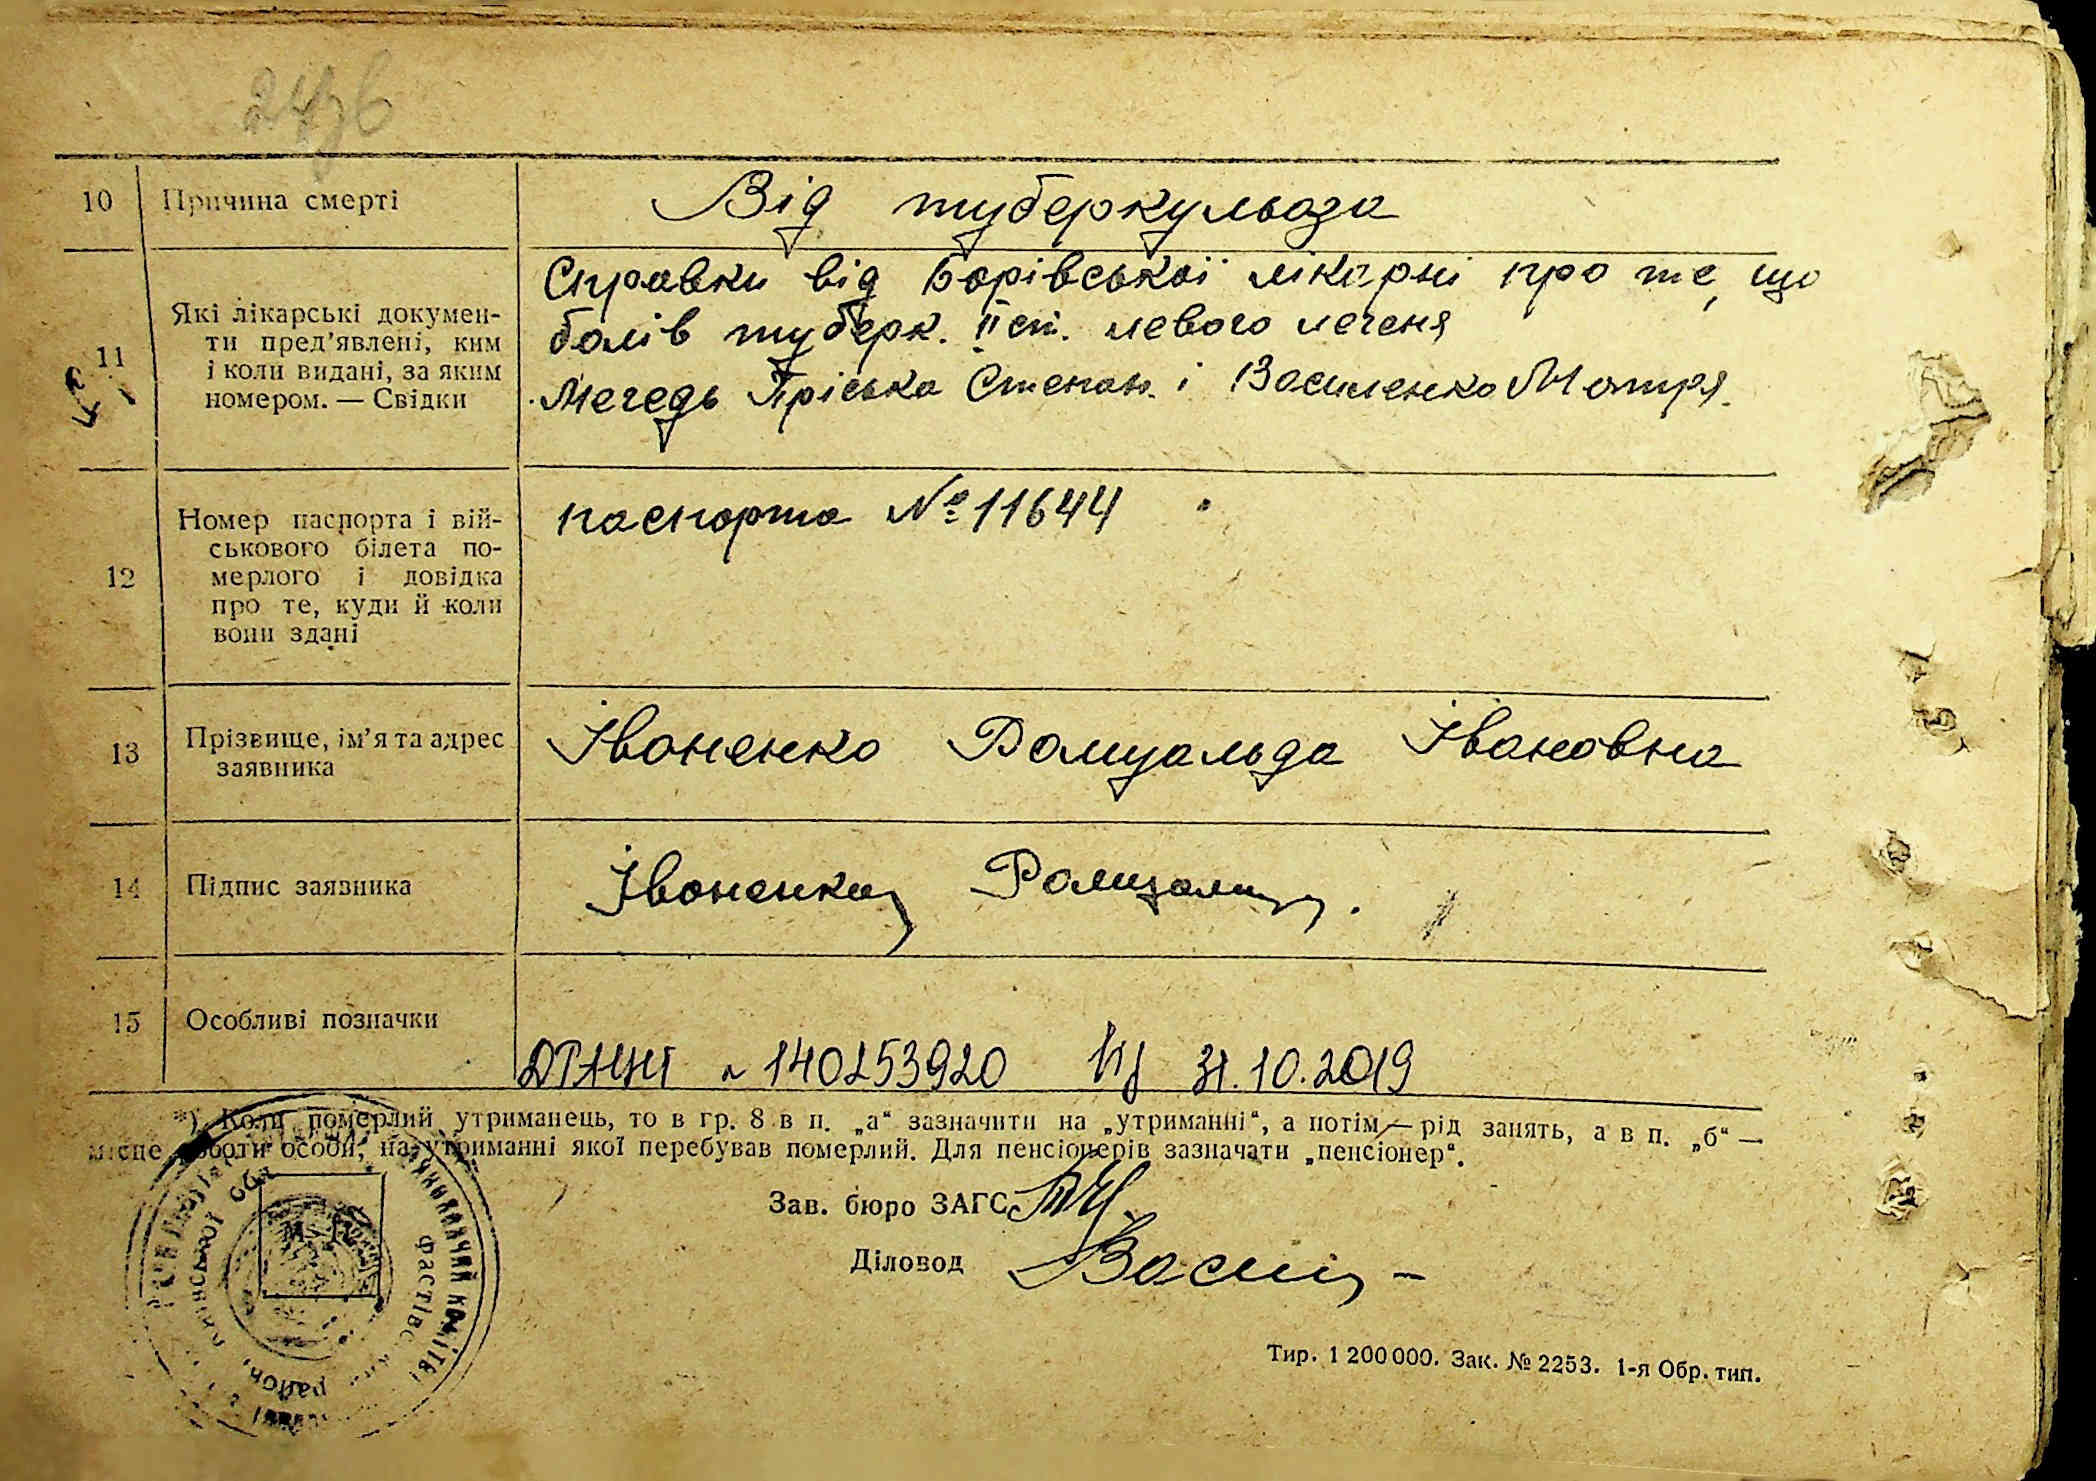 10 Причина смерті Від туберкульоза
11 Які лікарські докумен-
ти пред’явлені, ким
і коли видані, за яким
номером. — Свідки
Справки від Борівської лікарні про те, що
болів туберк. II ст. левого легеня
Мегедь Пріська Степан. і Василенко Мотря.
12 Номер паспорта і вій-
ськового білета по-
мерлого і довідка
про те, куди й коли
вони здані
паспорта № 11644
13 Прізвище, ім’я та адрес
заявника
Івоненко Ромуальда Івановна
14 Підпис заявника Івоненко
15 Особливі позначки
140253920 31.10.2019
*) Коли померлий утриманець, то в гр. 8 в п. „а“ зазначити на „утриманні“, а потім — рід занять, а в п. „б“ —
місце роботи особи, на утриманні якої перебував померлий. Для пенсіонерів зазначати „пенсіонер“.
Зав. бюро ЗАГС
Діловод
Тир. 1 200 000. Зак. № 2253. 1-я Обр. тип.